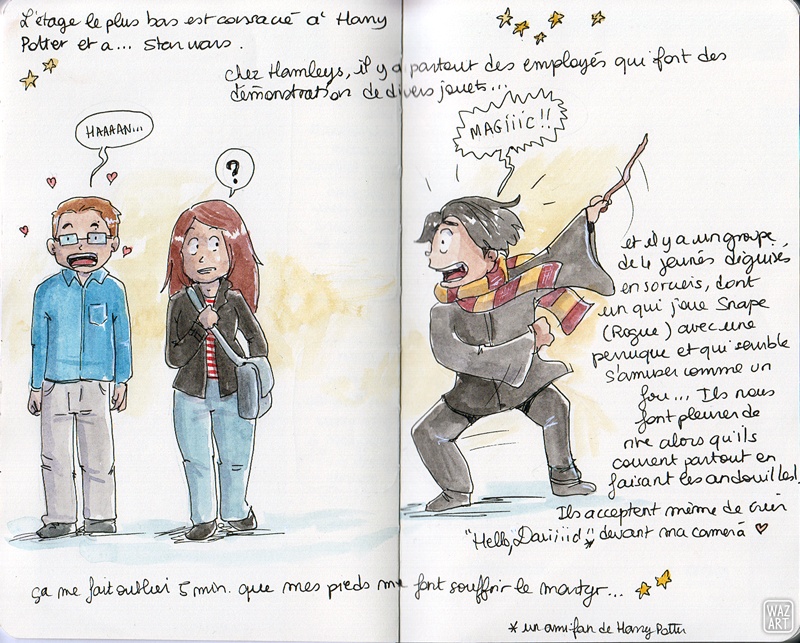 L'étage le plus bas est consacré à Harry
Potter et a... Star wars.
chez Hamleys, il y a partout des employés qui font des
démonstration de divers jouets...
HAAAAN...
?
MAGIIIC!!
et il y a un groupe
de 4 jeunes déguisés
en sorciers, dont
un qui joue Snape
(Rogue) avec une
perruque et qui semble
s'amuser comme un
fou... Ils nous
font pleurer de
rire alors qu'ils
courent partout en
faisant les andouilles!
Ils acceptent même de crier
"Hello, Daviiiid"* devant ma caméra
ça me fait oublier 5 min. que mes pieds me font souffrir le martyr...
* un ami fan de Harry Potter
WAZ
ART